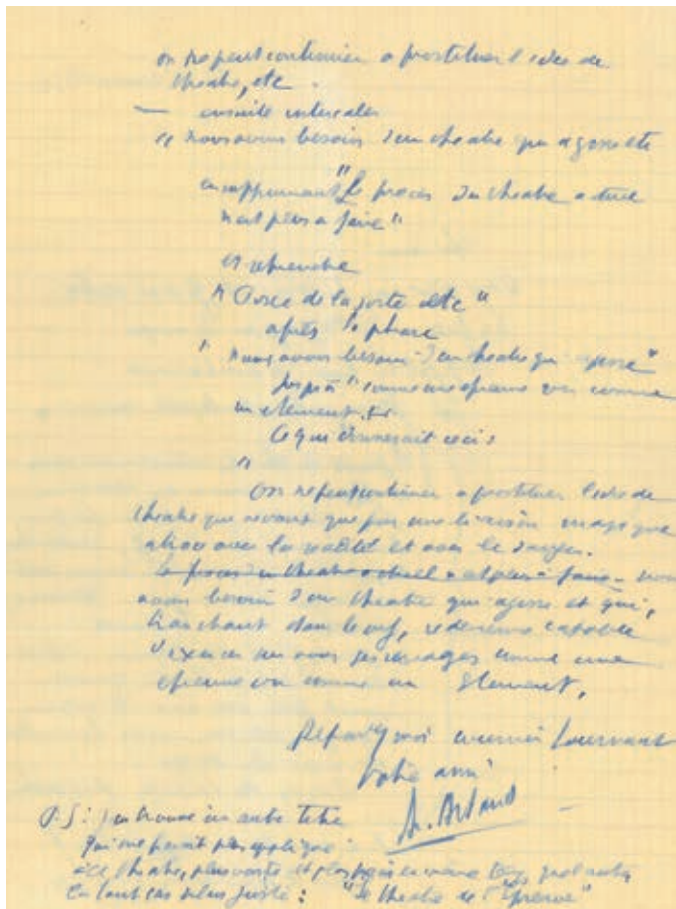 on ne peut continuer a prostituer l'idée de
theatre, etc.
— ensuite intercaler
"nous avons besoin d'un theatre qui agisse etc
en supprimant "Le procès du theatre actuel
n'est plus a faire"
et reprendre
"A force de la sorte etc"
après la phrase
"nous avons besoin d'un theatre qui agisse"
jusqu'à "comme une épreuve ou comme
un element.
Ce qui donnerait ceci :
"
On ne peut continuer a prostituer l'idée de
theatre qui ne vaut que par une liaison magique
atroce avec la realité et avec le danger.
Le procès du theatre actuel n'est plus a faire - nous
avons besoin d'un theatre qui agisse et qui,
tranchant dans le vif, redevienne capable
d'exercer sur nous ses ravages comme une
épreuve ou comme un element.
moi
Votre ami
A. Artaud
P.S : j'ai trouvé un autre titre
qui me parait plus
theatre, plus vaste et plus
En tout cas plus juste : "Le theatre de l'Epreuve"